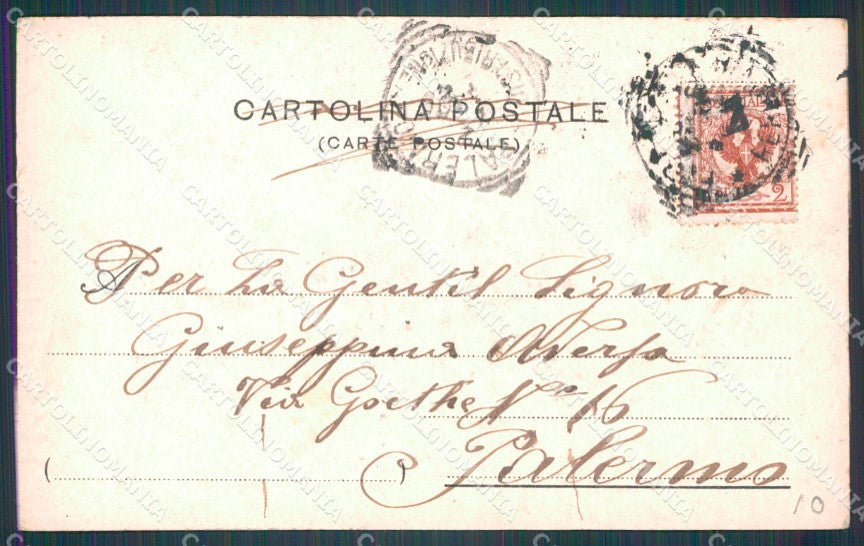 CARTOLINA POSTALE
(CARTE POSTALE)
PALERMO
DISTRIBUZIONE
2
Per La Gentil Signora
Giuseppina Aversa
Via Goethe N° 16
Palermo
10
CARTOLINOMANIA